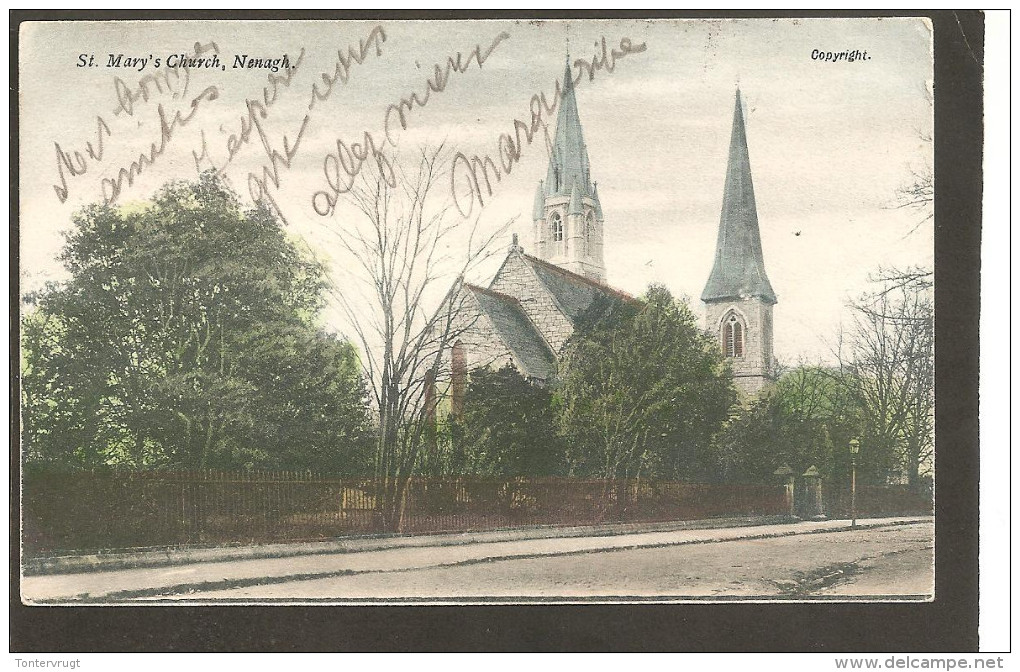 St. Mary's Church, Nenagh.
Copyright.
Mes bonnes
amitiés
J'espère
que vous
allez mieux
Marguerite
Tontervrugt
www.delcampe.net